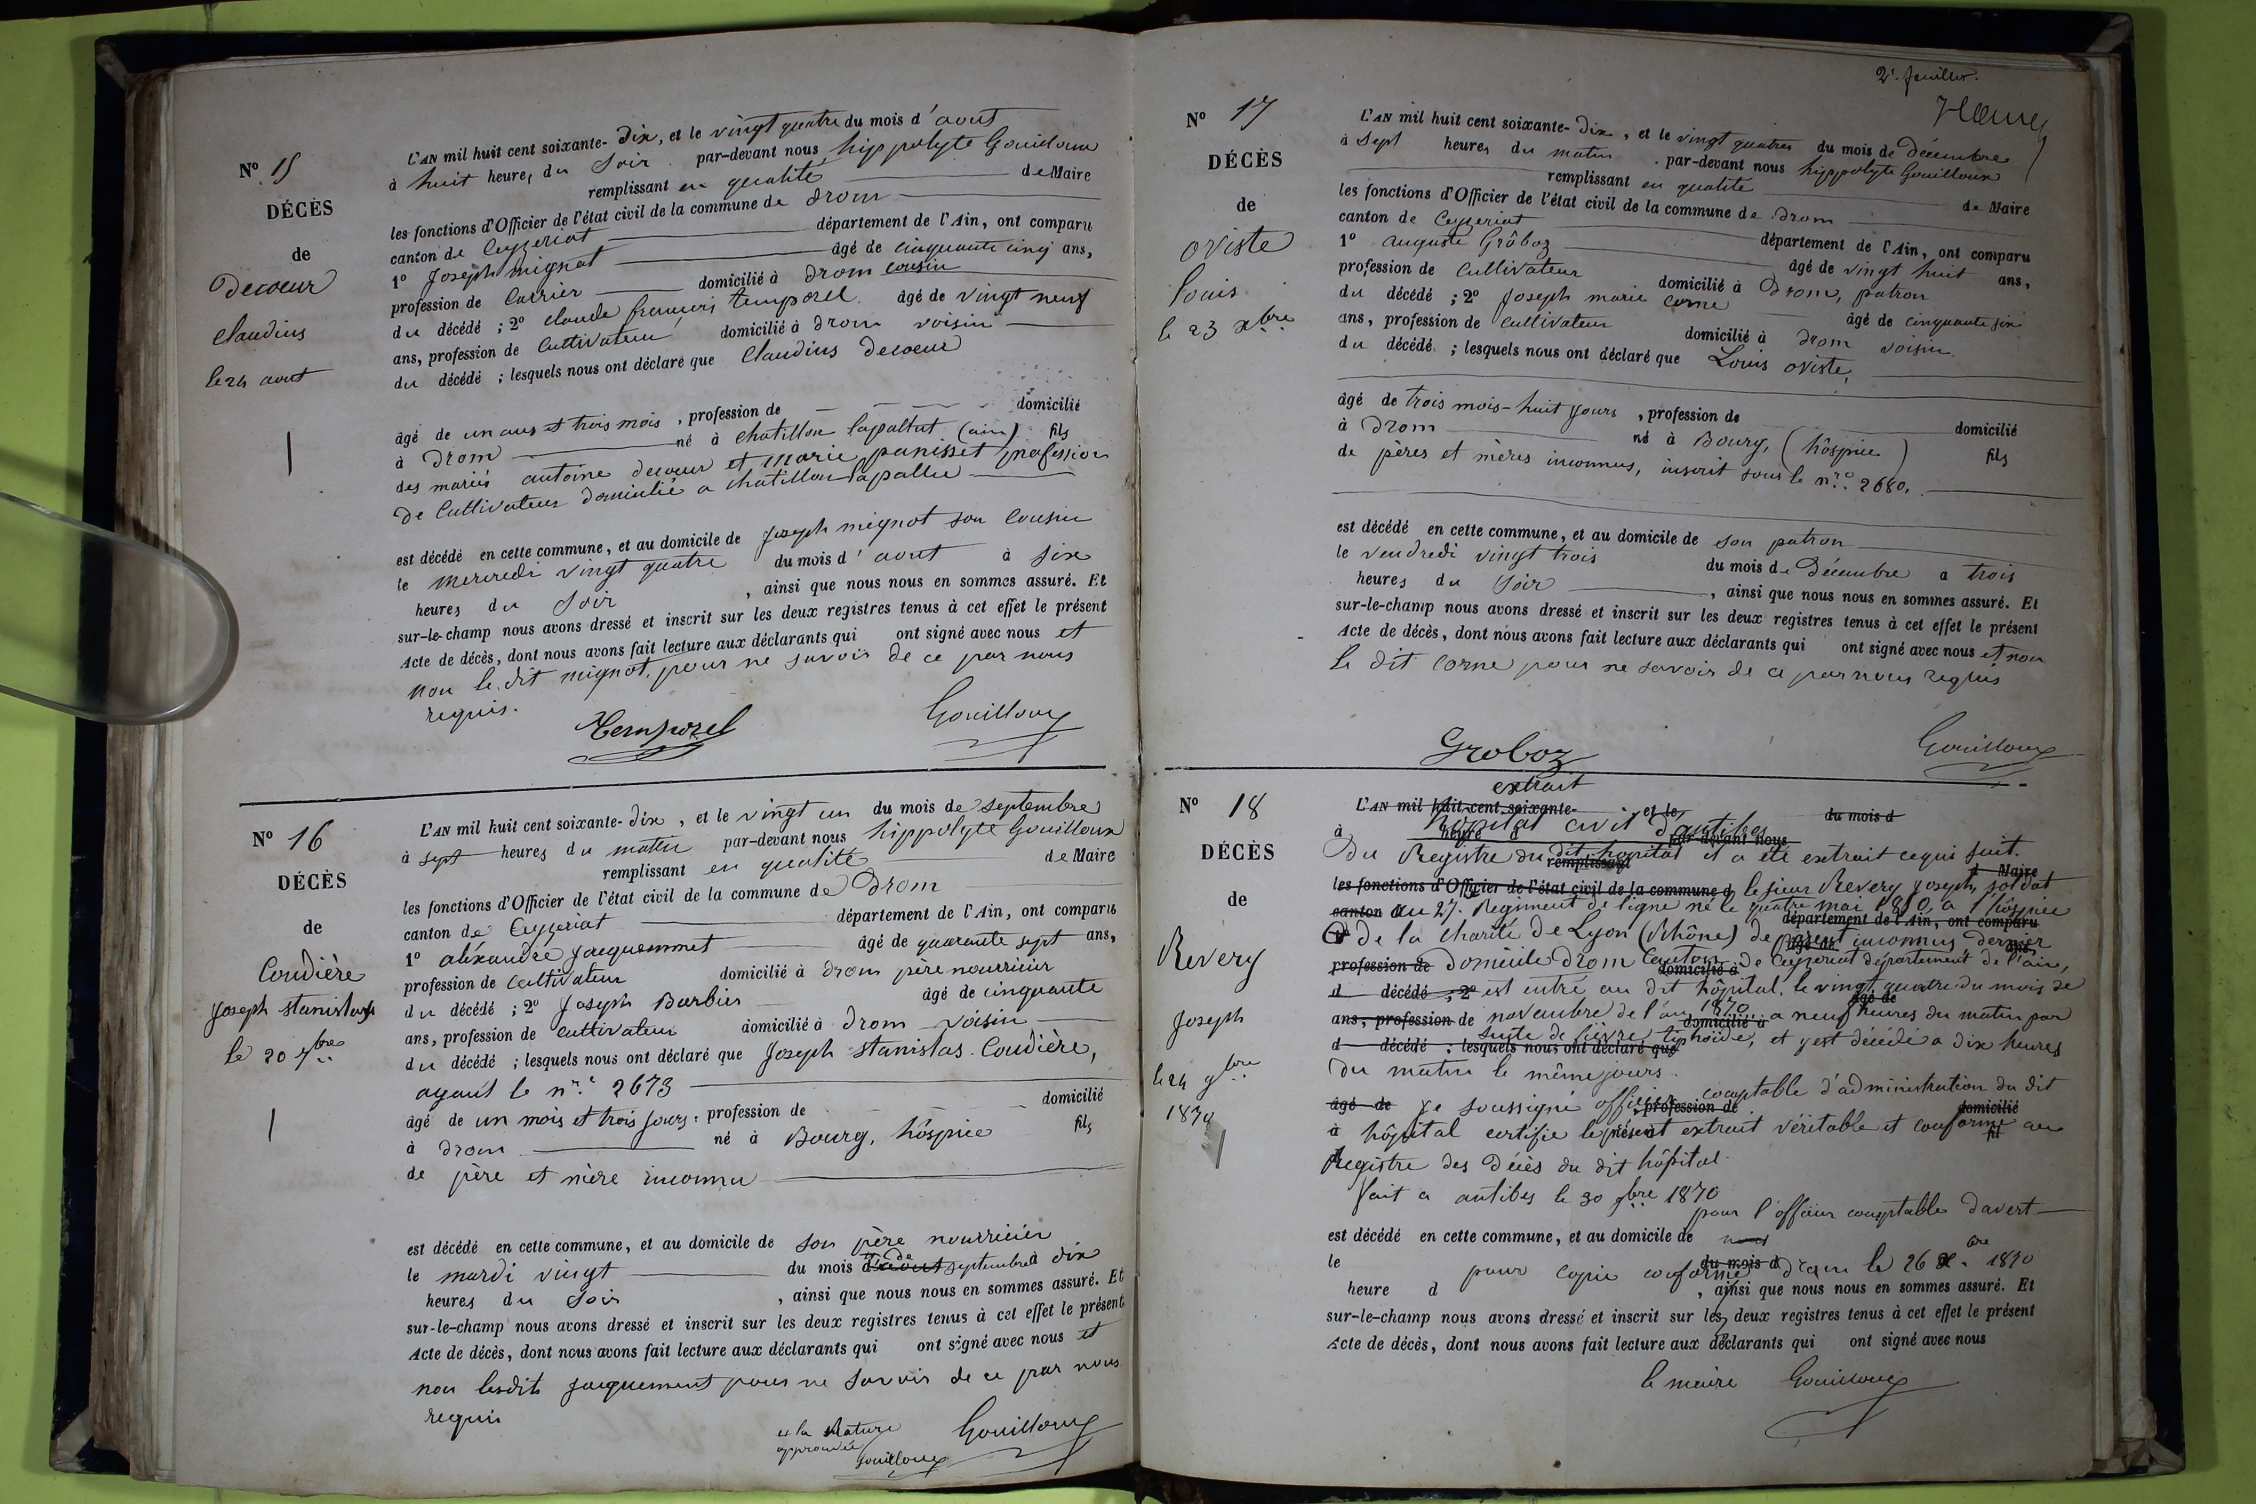 N° 15
DÉCÈS
de
Decoeur
Claudius
le 24 aout
L'AN mil huit cent soixante-Dix, et le vingt quatre du mois d'aout
à huit heures du Soir par-devant nous hippolyte Gouilloux
remplissant en qualité de Maire
les fonctions d'Officier de l'état civil de la commune de Drom
canton de Ceyzeriat département de l'Ain, ont comparu
1° Joseph mignot âgé de cinquante cinq ans,
profession de Carrier domicilié à Drom cousin
du décédé ; 2° claude françois temporel âgé de vingt neuf
ans, profession de Cultivateur domicilié à Drom voisin
du décédé ; lesquels nous ont déclaré que Claudius Decoeur
âgé de un ans et trois mois, profession de domicilié
à Drom né à chatillon lapallut (ain) fils
des mariés antoine decoeur et Marie panisset profession
De Cultivateur Domicilié a chatillon lapallue
est décédé en cette commune, et au domicile de Joseph mignot son Cousin
le mercredi vingt quatre du mois d'aout à six
heures du Soir, ainsi que nous nous en sommes assuré. Et
sur-le-champ nous avons dressé et inscrit sur les deux registres tenus à cet effet le présent
Acte de décès, dont nous avons fait lecture aux déclarants qui ont signé avec nous et
non le dit mignot, pour ne savoir de ce par nous
requis.
Temporel Gouilloux
N° 16
DÉCÈS
de
Coudière
Joseph Stanislas
Le 20 7bre
L'AN mil huit cent soixante-dix, et le vingt un du mois de septembre
à sept heures du matin par-devant nous hippolyte Gouilloux
remplissant en qualité de Maire
les fonctions d'Officier de l'état civil de la commune de Drom
canton de Ceyzeriat département de l'Ain, ont comparu
1° aléxandre Jacquemmet âgé de quarante sept ans,
profession de cultivateur domicilié à drom père nourricier
du décédé ; 2° Joseph Barbier âgé de cinquante
ans, profession de cultivateur domicilié à Drom voisin
du décédé ; lesquels nous ont déclaré que Joseph Stanislas Coudière,
ayant le n° 2673
âgé de un mois et trois jours, profession de domicilié
à Drom né à Bourg, hôspice fils
de père et mère inconnu
est décédé en cette commune, et au domicile de son père nourricier
le mardi vingt du mois d'aout de septembre à dix
heures du Soir, ainsi que nous nous en sommes assuré. Et
sur-le-champ nous avons dressé et inscrit sur les deux registres tenus à cet effet le présent
Acte de décès, dont nous avons fait lecture aux déclarants qui ont signé avec nous et
non lesdits Jacquemmet pour ne savoir de ce par nous
requis
et la Rature
approuvée
Gouilloux Gouilloux
2e feuillet.
N° 17
DÉCÈS
de
oviste
Louis
le 23 xbre
L'AN mil huit cent soixante-Dix, et le vingt quatres du mois de Décembre
à sept heures du matin par-devant nous hippolyte Gouilloux
remplissant en qualité de Maire
les fonctions d'Officier de l'état civil de la commune de Drom
canton de Ceyzeriat département de l'Ain, ont comparu
1° auguste Grôboz âgé de vingt huit ans,
profession de Cultivateur domicilié à Drom, patron
du décédé ; 2° Joseph marie Corne âgé de cinquante six
ans, profession de cultivateur domicilié à Drom voisin
du décédé ; lesquels nous ont déclaré que Louis oviste,
âgé de trois mois-huit jours, profession de domicilié
à Drom né à Bourg, (hôspice) fils
de pères et mères inconnus, inscrit sous le nro 2680.
est décédé en cette commune, et au domicile de son patron
le vendredi vingt trois du mois de Décembre a trois
heures du Soir, ainsi que nous nous en sommes assuré. Et
sur-le-champ nous avons dressé et inscrit sur les deux registres tenus à cet effet le présent
Acte de décès, dont nous avons fait lecture aux déclarants qui ont signé avec nous et non
le dit Corne pour ne savoir de ce par nous requis
Groboz Gouilloux
N° 18
DÉCÈS
de
Revery
Joseph
le 24 9bre
1870
extrait
L'AN mil huit cent soixante- et le du mois d
hôpital civil d'antibes
à heure d par-devant nous
Du Registre du dit hopital il a été extrait cequi suit.
remplissant d Maire
les fonctions d'Officier de l'état civil de la commune d le sieur Revery Joseph, soldat
canton au 27e Regiment de ligne né le quatre mai 1850, a l'hôspice
département de l'Ain, ont comparu
de la charité de Lyon (Rhône) de parent inconnus Dernier
âgé de ans,
profession de Domicile Drom Canton de Ceyzeriat département de l'ain,
domicilié à
d décédé ; 2° est entré au dit hôpital. le vingt quatre du mois de
âgé de
ans, profession de novembre de l'an 1870 a neuf heures du matin par
domicilié à
suite de fièvre typhoïde, et y est décédé a dix heures
d décédé ; lesquels nous ont déclaré que
Du matin le même jours.
âgé de Je soussigné officier comptable d'administration du dit
profession de domicilié
à hôpital certifie le présent extrait véritable et conforme au
fil
Registre des Décès du dit hôpital.
fait a antibes le 30 9bre 1870
pour l'officier comptable Davert
est décédé en cette commune, et au domicile de
le du mois d
pour copie conforme Drom le 26 xbre 1870
heure d, ainsi que nous nous en sommes assuré. Et
sur-le-champ nous avons dressé et inscrit sur les deux registres tenus à cet effet le présent
Acte de décès, dont nous avons fait lecture aux déclarants qui ont signé avec nous
le maire Gouilloux